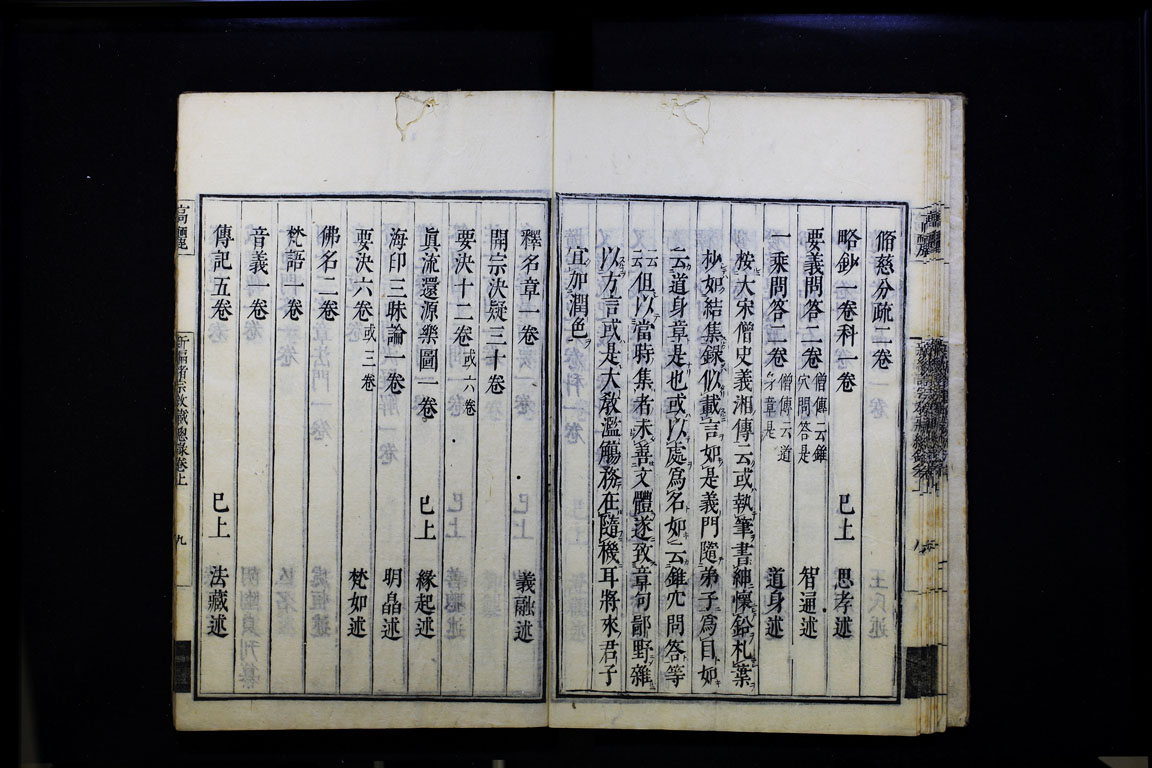 脩慈分疏二卷
略鈔一卷科一卷 已上 思孝述
要義問答二卷 僧傳云錐穴問答是 智通述
一乘問答二卷 僧傳云道身章是 道身述
桉大宋僧史義湘傳云或執筆書紳懷鉛札葉
抄如結集錄似載言如是義門隨弟子爲目如
云道身章是也或以處爲名如云錐穴問答等
云云但以當時集者未善文體遂致章句鄙野雜
以方言或是大教濫觴務在隨機耳將來君子
宜加潤色
釋名章一卷
開宗決疑三十卷 義融述
要決十二卷 或六卷
眞流還源樂圖一卷 已上 緣起述
海印三昧論一卷 明晶述
要決六卷 或三卷 梵如述
佛名二卷
梵語一卷
音義一卷
傳記五卷 已上 法藏述
新編諸宗教藏總錄卷上
九